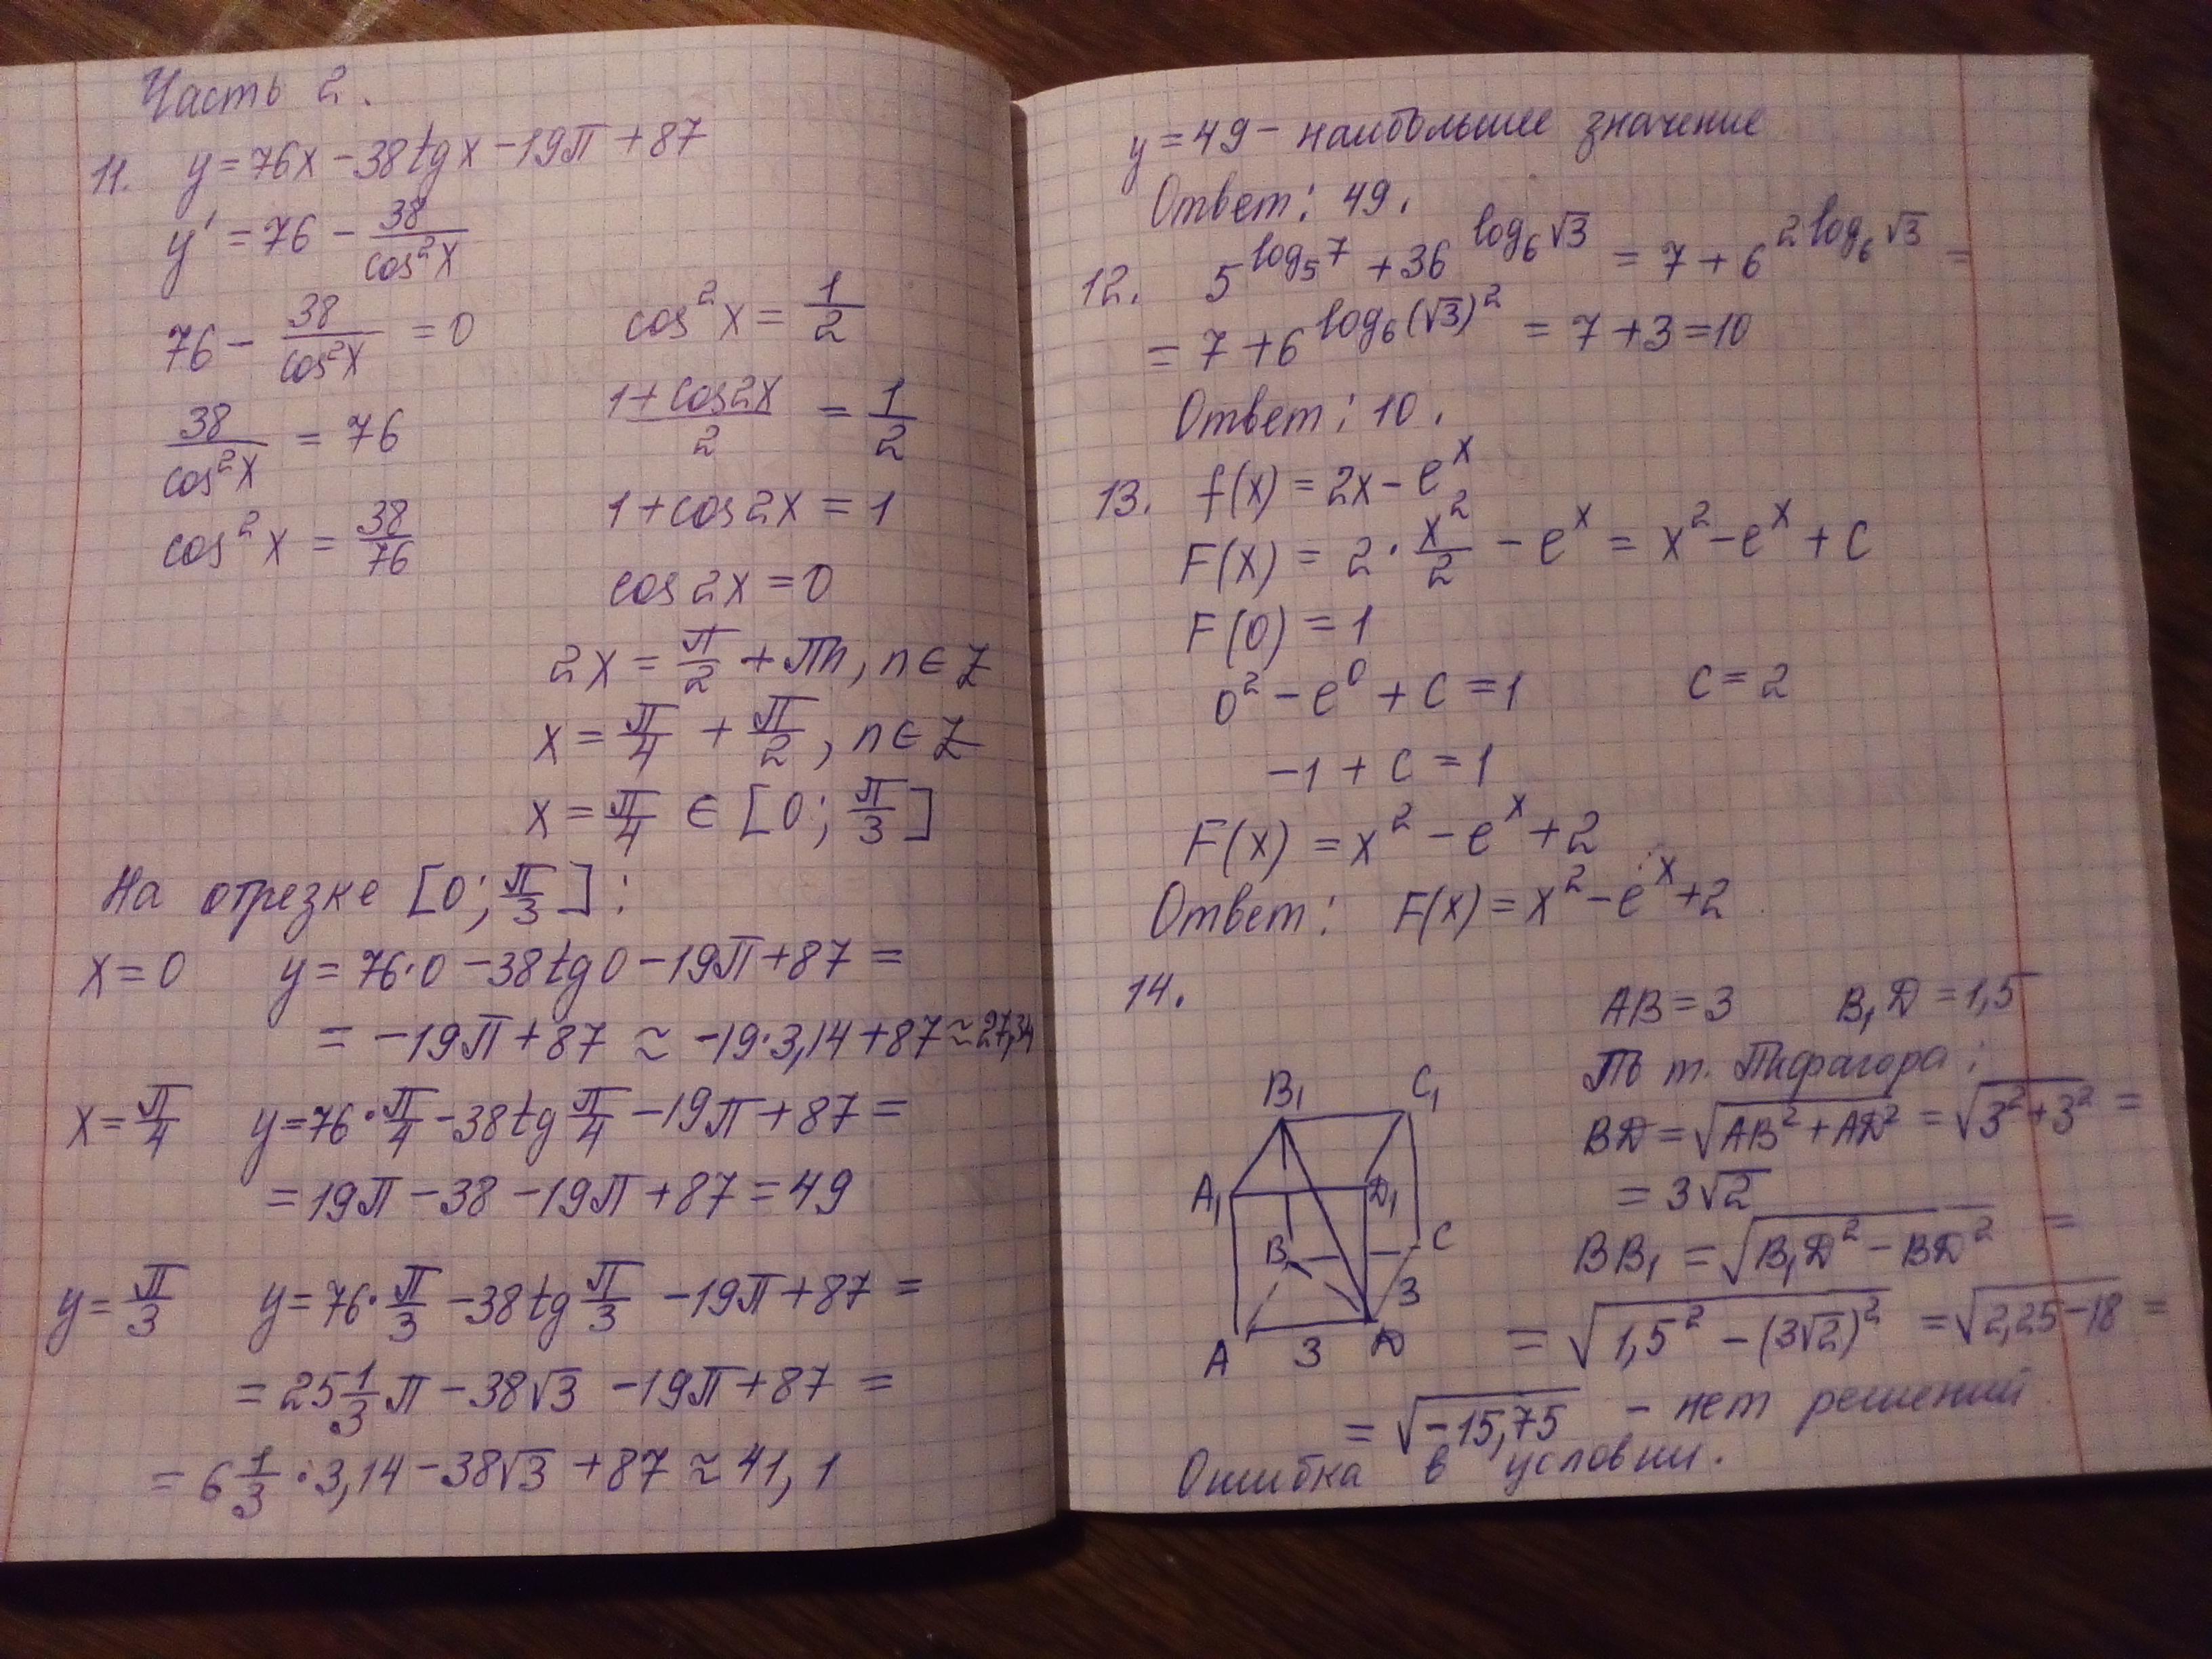 Часть 2.
11. y = 76x − 38tgx − 19π + 87
y' = 76 − 38/cos²x
76 − 38/cos²x = 0
38/cos²x = 76
cos²x = 38/76
cos²x = 1/2
(1 + cos2x)/2 = 1/2
1 + cos2x = 1
cos2x = 0
2x = π/2 + πn, n ∈ Z
x = π/4 + π/2, n ∈ Z
x = π/4 ∈ [0; π/3]
На отрезке [0; π/3]:
x = 0 y = 76·0 − 38tg0 − 19π + 87 =
= −19π + 87 ≈ −19·3,14 + 87 ≈ 27,34
x = π/4 y = 76·π/4 − 38tg π/4 − 19π + 87 =
= 19π − 38 − 19π + 87 = 49
y = π/3 y = 76·π/3 − 38tg π/3 − 19π + 87 =
= 25 1/3 π − 38√3 − 19π + 87 =
= 6 1/3 · 3,14 − 38√3 + 87 ≈ 41,1
y = 49 − наибольшее значение
Ответ: 49.
12. 5^(log₅7) + 36^(log₆√3) = 7 + 6^(2log₆√3) =
= 7 + 6^(log₆(√3)²) = 7 + 3 = 10
Ответ: 10.
13. f(x) = 2x − eˣ
F(x) = 2 · x²/2 − eˣ = x² − eˣ + C
F(0) = 1
0² − e⁰ + C = 1 C = 2
−1 + C = 1
F(x) = x² − eˣ + 2
Ответ: F(x) = x² − eˣ + 2
14.
AB = 3 B₁D = 1,5
По т. Пифагора:
BD = √(AB² + AD²) = √(3² + 3²) =
= 3√2
BB₁ = √(B₁D² − BD²) =
= √(1,5² − (3√2)²) = √(2,25 − 18) =
= √(−15,75) − нет решений
Ошибка в условии.
B₁ C₁
A₁ D₁
B C
3
A 3 D